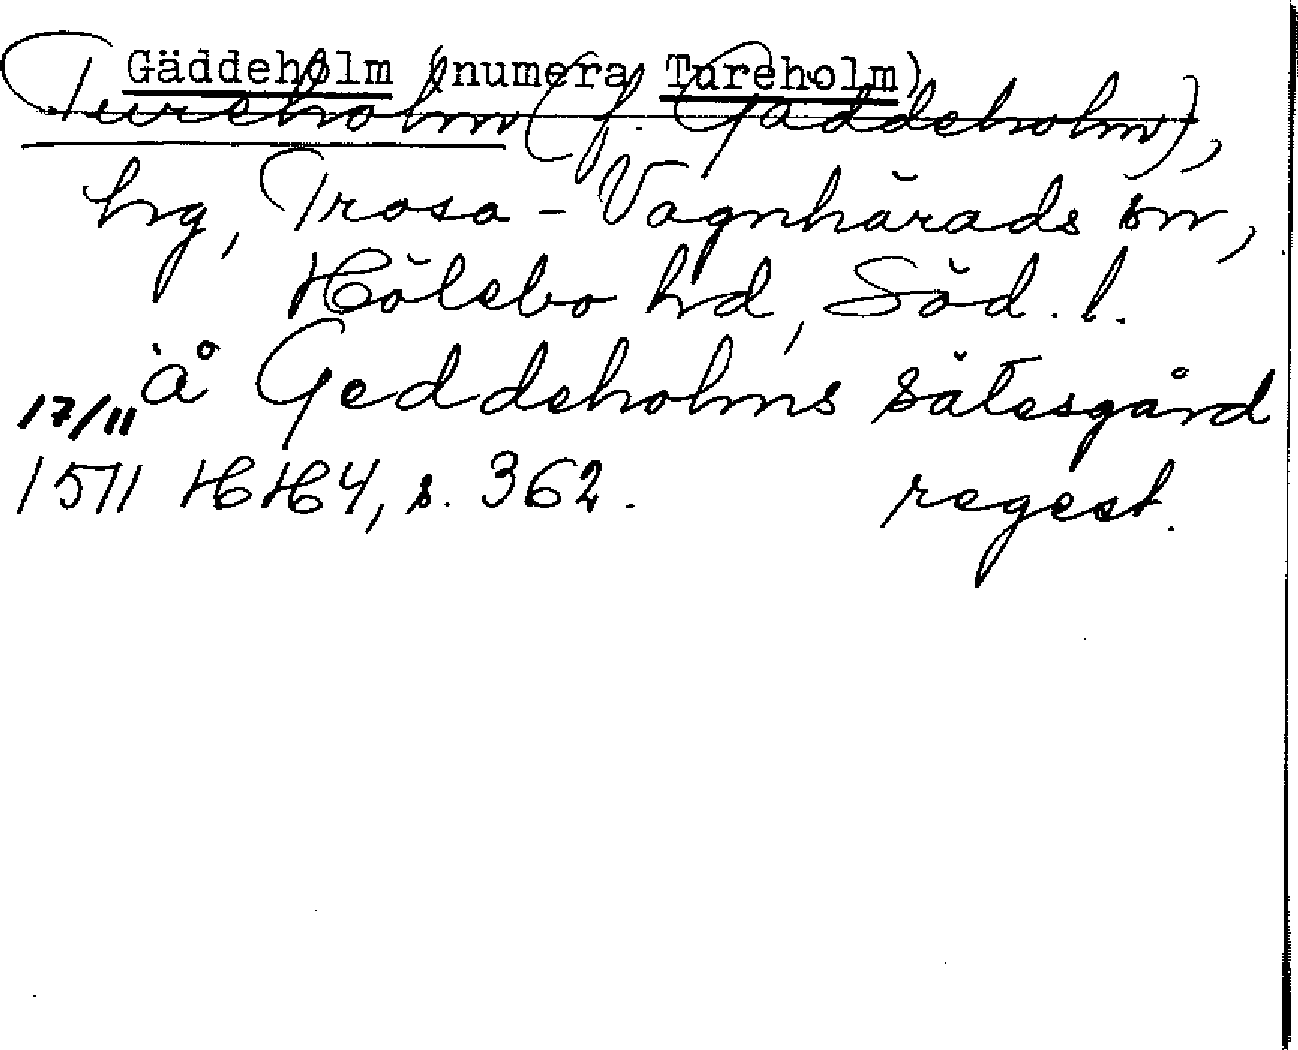 Gäddeholm (numera Tureholm)
Tureholm (f. Gäddeholm),
hg, Trosa-Vagnhärads sn,
Hölebo hd, Söd. l.
å Geddeholms sätesgård
17/11
1511 HH4, s. 362. regest.